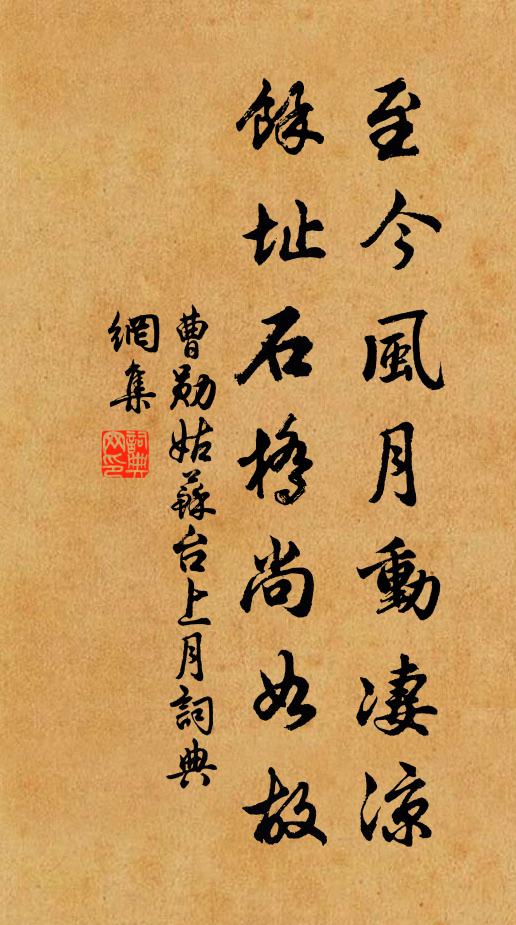 至今風月動淒涼
餘址石橋尚如故
曹勛姑蘇台上月詞典
網集
詞典
网印